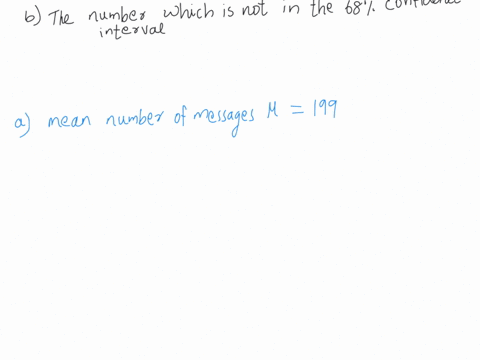 b) The number which is not in the 68% confidence
interval
a) mean number of messages M = 199